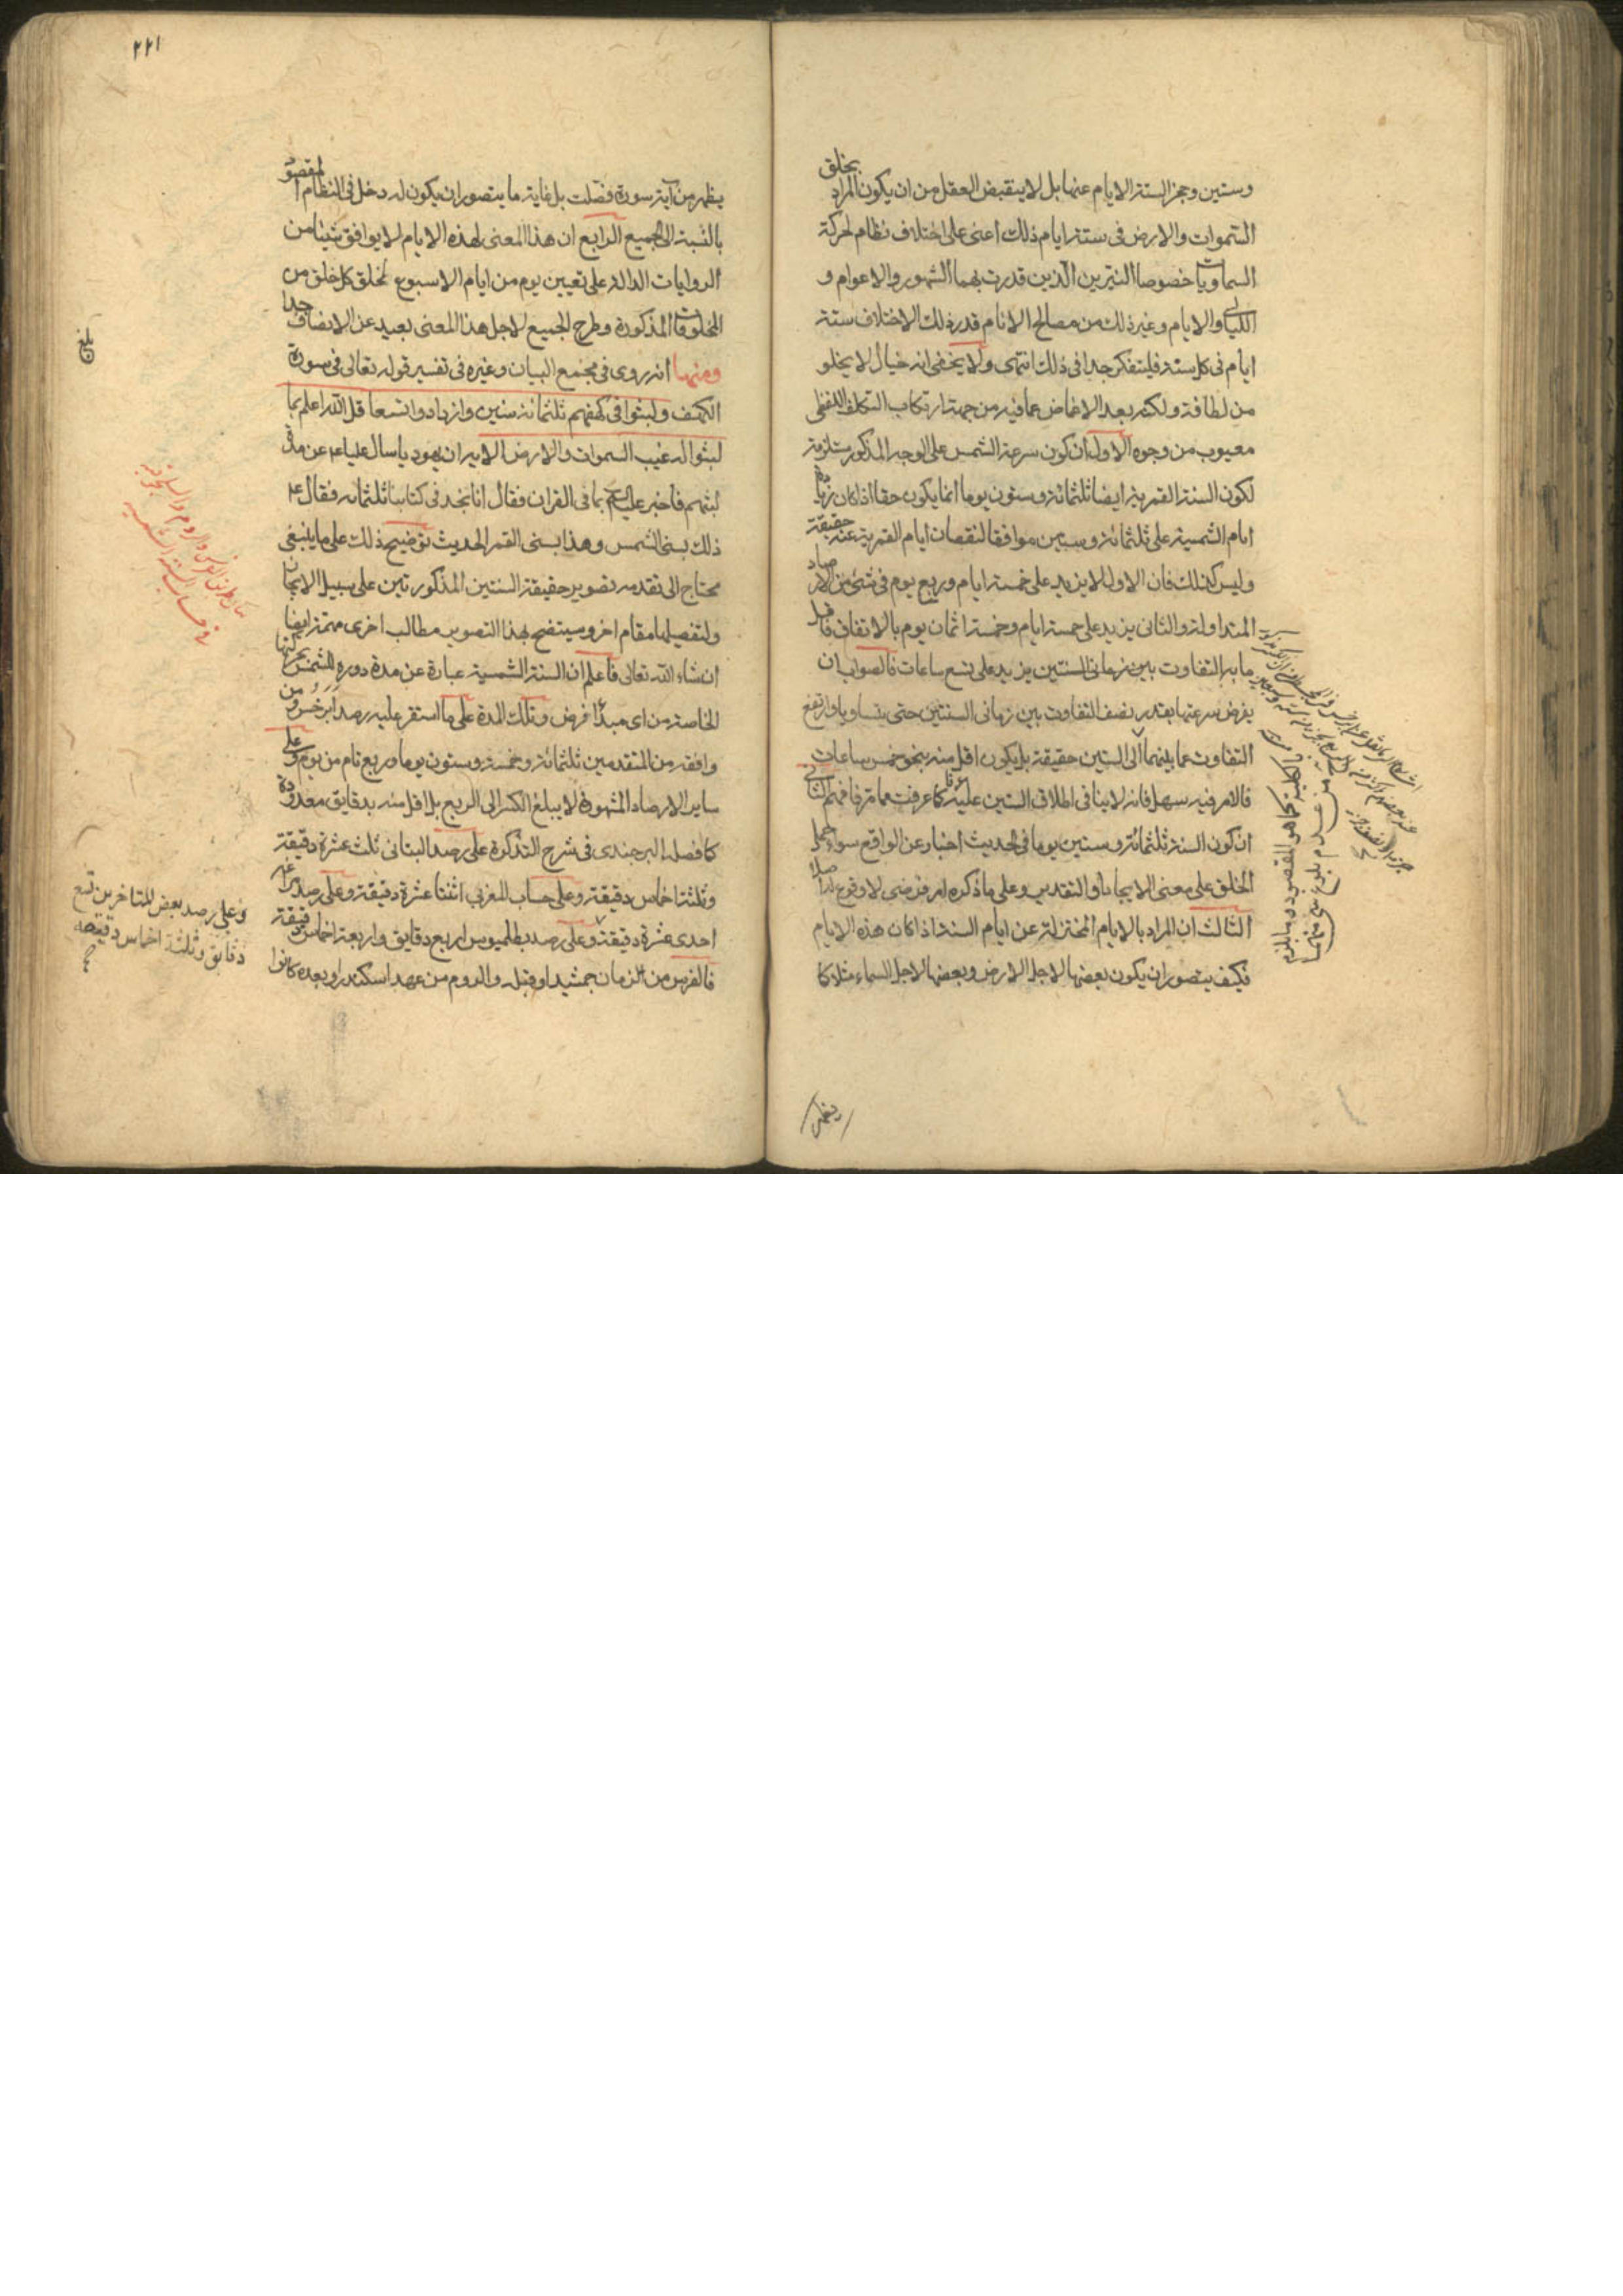 وستين وحجز الستة الايام عنها بل لا ينقبض العقل من ان يكون المراد بخلق
السموات والارض فى ستة ايام ذلك اعنى على اختلاف نظام لحركة
السماويات خصوصا النيرين الذين قدرت بهما الشهور والاعوام و
الليالى والايام وغير ذلك من مصالح الانام قدر ذلك الاختلاف ستة
ايام فى كل سنة فليتفكر جدا فى ذلك انتهى ولا يخفى انه خيال لا يخلو
من لطافة ولكنه بعد الاغماض عما فيه من جهة ارتكاب التكلف اللفظى
معيوب من وجوه الاول ان كون سرعة الشمس على الوجه المذكور مستلزمة
لكون السنة القمرية ايضا ثلثمائة وستون يوما انما يكون حقا اذا كان زيادة
ايام الشمسية على ثلثمائة وستين موافقا لنقصان ايام القمرية عنه حقيقة
وليس كذلك فان الاول لا يزيد على خمسة ايام وربع يوم فى شئ من الارصاد
المتداولة والثانى يزيد على خمسة ايام وخمسة اثمان يوم بالاتفاق فاقل
ما به التفاوت بين زمانى السنتين يزيد على تسع ساعات فالصواب ان
يفرض سرعتها بقدر نصف التفاوت بين زمانى السنتين حتى يتساويا وارتفع
التفاوت عما بينهما الى الستين حقيقة بل يكون اقل منه بنحو خمس ساعات
فالامر فيه سهل فانه لا ينافى اطلاق الستين عليه عرفا كما عرفت مما مر فافهم الثانى
ان كون السنة ثلثمائة وستين يوما فى الحديث اخبار عن الواقع سواء حمل
الخلق على معنى الايجاد او التقدير وعلى ما ذكره امر فرضى لا وقوع له اصلا
الثالث ان المراد بالايام المختزلة عن ايام السنة اذا كان هذه الايام
فكيف يتصور ان يكون بعضها لاجل الارض وبعضها لاجل السماء مثلا كما
بالكلية كما هو المقصود
٢٢١
يظهر من آية سورة فصلت بل غاية ما يتصور ان يكون له دخل فى النظام المقصود
بالنسبة الى الجميع الرابع ان هذا المعنى لهذه الايام لا يوافق شيئا من
الروايات الدالة على تعيين يوم من ايام الاسبوع لخلق كل خلق من
المخلوقات المذكورة وطرح الجميع لاجل هذا المعنى بعيد عن الانصاف جدا
ومنها انه روى فى مجمع البيان وغيره فى تفسير قوله تعالى فى سورة
الكهف ولبثوا فى كهفهم ثلثمائة سنين وازدادوا تسعا قل الله اعلم بما
لبثوا له غيب السموات والارض الاية ان يهوديا سال عليا ع عن مدة
لبثهم فاخبر عليه السلام بما فى القران فقال انا نجد فى كتابنا ثلثمائة فقال ع
ذلك بسنى الشمس وهذا بسنى القمر الحديث توضيح ذلك على ما ينبغى
محتاج الى تقدمه تصوير حقيقة السنتين المذكورتين على سبيل الايجاز
ولتفصيلها مقام اخر وسيتضح بهذا التصوير مطالب اخرى مهمة ايضا
ان شاء الله تعالى فاعلم ان السنة الشمسية عبارة عن مدة دوره للشمس بحركتها
الخاصة من اى مبدأ فرض وتلك المدة على ما استقر عليه رصد ابرخس ومن
وافقه من المتقدمين ثلثمائة وخمسة وستون يوما وربع تام من يوم وعلى
ساير الارصاد المشهورة لا يبلغ الكسر الى الربع بل اقل منه بدقايق معدودة
كما فصله البرجندى فى شرح التذكرة على رصد البتانى ثلث عشرة دقيقة
وثلثة اخماس دقيقة وعلى حساب المغربى اثنتا عشرة دقيقة وعلى رصد مراغه
احدى عشرة دقيقة وعلى رصد بطلميوس اربع دقايق واربعة اخماس دقيقة
فالفرس من زمان جمشيد او قبله والروم من عهد اسكندر او بعده كانوا
وعلى رصد بعض المتاخرين تسع
دقايق وثلثة اخماس دقيقة
صح
بيان طريق الفرس والروم
فى حساب السنة الشمسية
بلغ